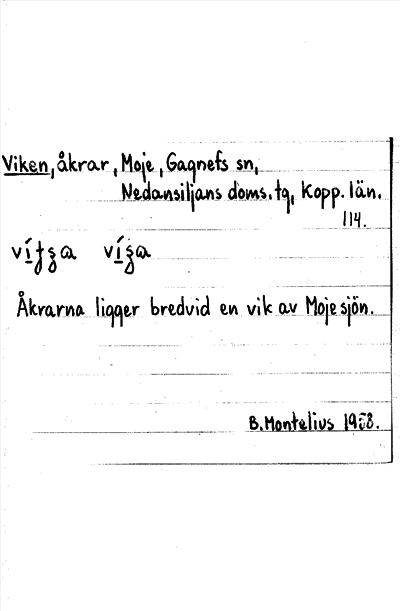 Viken, åkrar, Moje, Gagnefs sn,
Nedansiljans doms. tg, Kopp. län.
114.
Åkrarna ligger bredvid en vik av Mojesjön.
B. Montelius